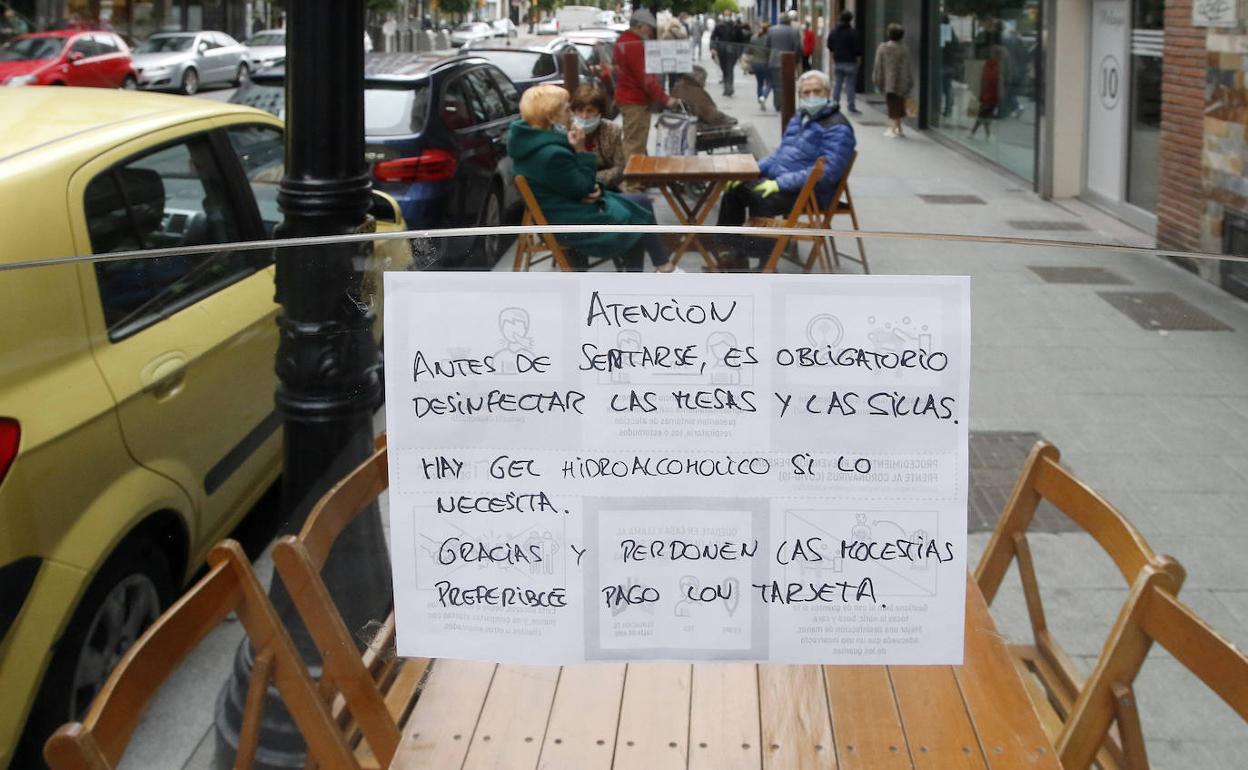 10
ATENCION
ANTES DE SENTARSE, ES OBLIGATORIO
DESINFECTAR LAS MESAS Y LAS SILLAS.
HAY GEL HIDROALCOHOLICO SI LO
NECESITA.
GRACIAS Y PERDONEN LAS MOLESTIAS
PREFERIBLE PAGO CON TARJETA.